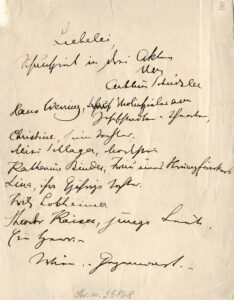 Liebelei
Schauspiel in drei Akten
von
Arthur Schnitzler
Hans Weiring,
Christine, seine Tochter.
Mizi Schlager, Modistin
Katharina Binder, Frau eines Strumpfwirkers
Lina, ihre Tochter.
Fritz Lobheimer
Theodor Kaiser, junge Leute.
Ein Herr.
Wien – Gegenwart. –